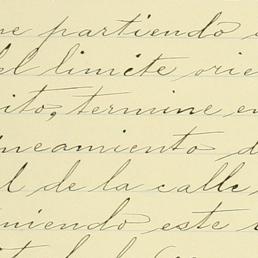 ue partiendo d
el limite orie
ito, termine en
ineamiento d
l de la calle
niendo este